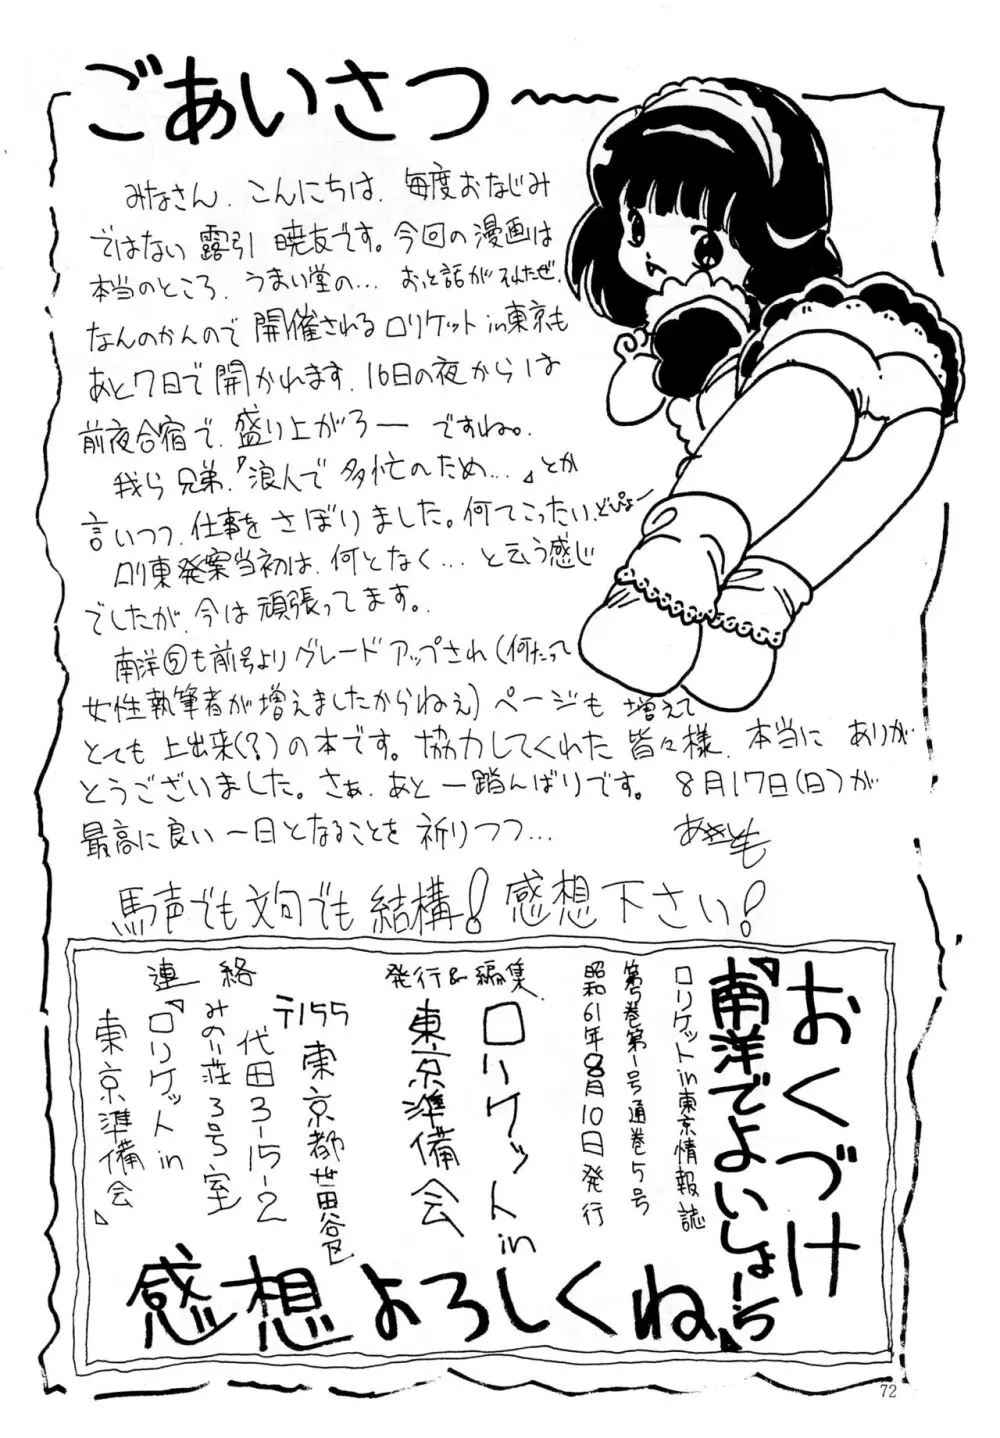 ごあいさつ〜
みなさん、こんにちは、毎度おなじみ
ではない 露引 暁友です。今回の漫画は
本当のところ、うまい堂の… おっと話がそれたぜ、
なんのかんので 開催される ロリケット in 東京も
あと7日で 開かれます。16日の夜からは
前夜合宿で、盛り上がろー ですね。
我ら兄弟、『浪人で 多忙のため…』とか
言いつつ、仕事を さぼりました。何てこったい、どぴょー
ロリ東発案当初は、何となく… と云う感じ
でしたが、今は 頑張ってます。
南洋⑤も前号より グレードアップされ(何たって
女性執筆者が増えましたからねぇ) ページも 増えて
とても 上出来(?)の本です。協力してくれた 皆々様、本当に ありが
とうございました。さぁ、あと 一踏んばりです。 8月17日(日)が
最高に良い 一日となることを 祈りつつ… あきとも
馬声でも文句でも結構! 感想下さい!
おくづけ
『南洋でよいしょーら』
ロリケット in 東京情報誌
第5巻第1号通巻5号
昭和61年8月10日発行
発行&編集
ロリケット in
東京準備会
〒155 東京都世田谷区
代田3-15-2
みのり荘3号室
連絡
『ロリケット in
東京準備会』
感想よろしくね
72